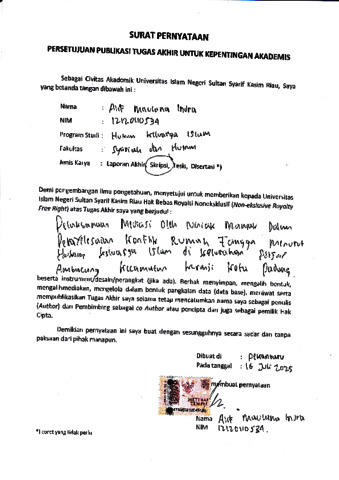 SURAT PERNYATAAN
PERSETUJUAN PUBLIKASI TUGAS AKHIR UNTUK KEPENTINGAN AKADEMIS
Sebagai Civitas Akademik Universitas Islam Negeri Sultan Syarif Kasim Riau, Saya
yang bertanda tangan dibawah ini :
Nama : Arif Maulana Indra
NIM : 12120110534
Program Studi : Hukum Keluarga Islam
Fakultas : Syariah dan Hukum
Jenis Karya : Laporan Akhir, Skripsi, Tesis, Disertasi *)
Demi pengembangan ilmu pengetahuan, menyetujui untuk memberikan kepada Universitas
Islam Negeri Sultan Syarif Kasim Riau Hak Bebas Royalti Noneksklusif (Non-ekslusive Royalty
Free Right) atas Tugas Akhir saya yang berjudul :
Pelaksanaan Mediasi Oleh Niniak Mamak Dalam
Penyelesaian Konflik Rumah Tangga menurut
Hukum Keluarga Islam di Kelurahan Pasar
Ambacang Kecamatan Kuranji Kota Padang
beserta instrumen/desain/perangkat (jika ada). Berhak menyimpan, mengalih bentuk,
mengalihmediakan, mengelola dalam bentuk pangkalan data (data base), merawat serta
mempublikasikan Tugas Akhir saya selama tetap mencatumkan nama saya sebagai penulis
(Author) dan Pembimbing sebagai co Author atau pencipta dan juga sebagai pemilik Hak
Cipta.
Demikian pernyataan ini saya buat dengan sesungguhnya secara sadar dan tanpa
paksaan dari pihak manapun.
Dibuat di : Pekanbaru
Pada tanggal : 16 Juli 2025
membuat pernyataan
METERAI
TEMPEL
Nama Arif Maulana Indra
NIM 12120110534
*) coret yang tidak perlu